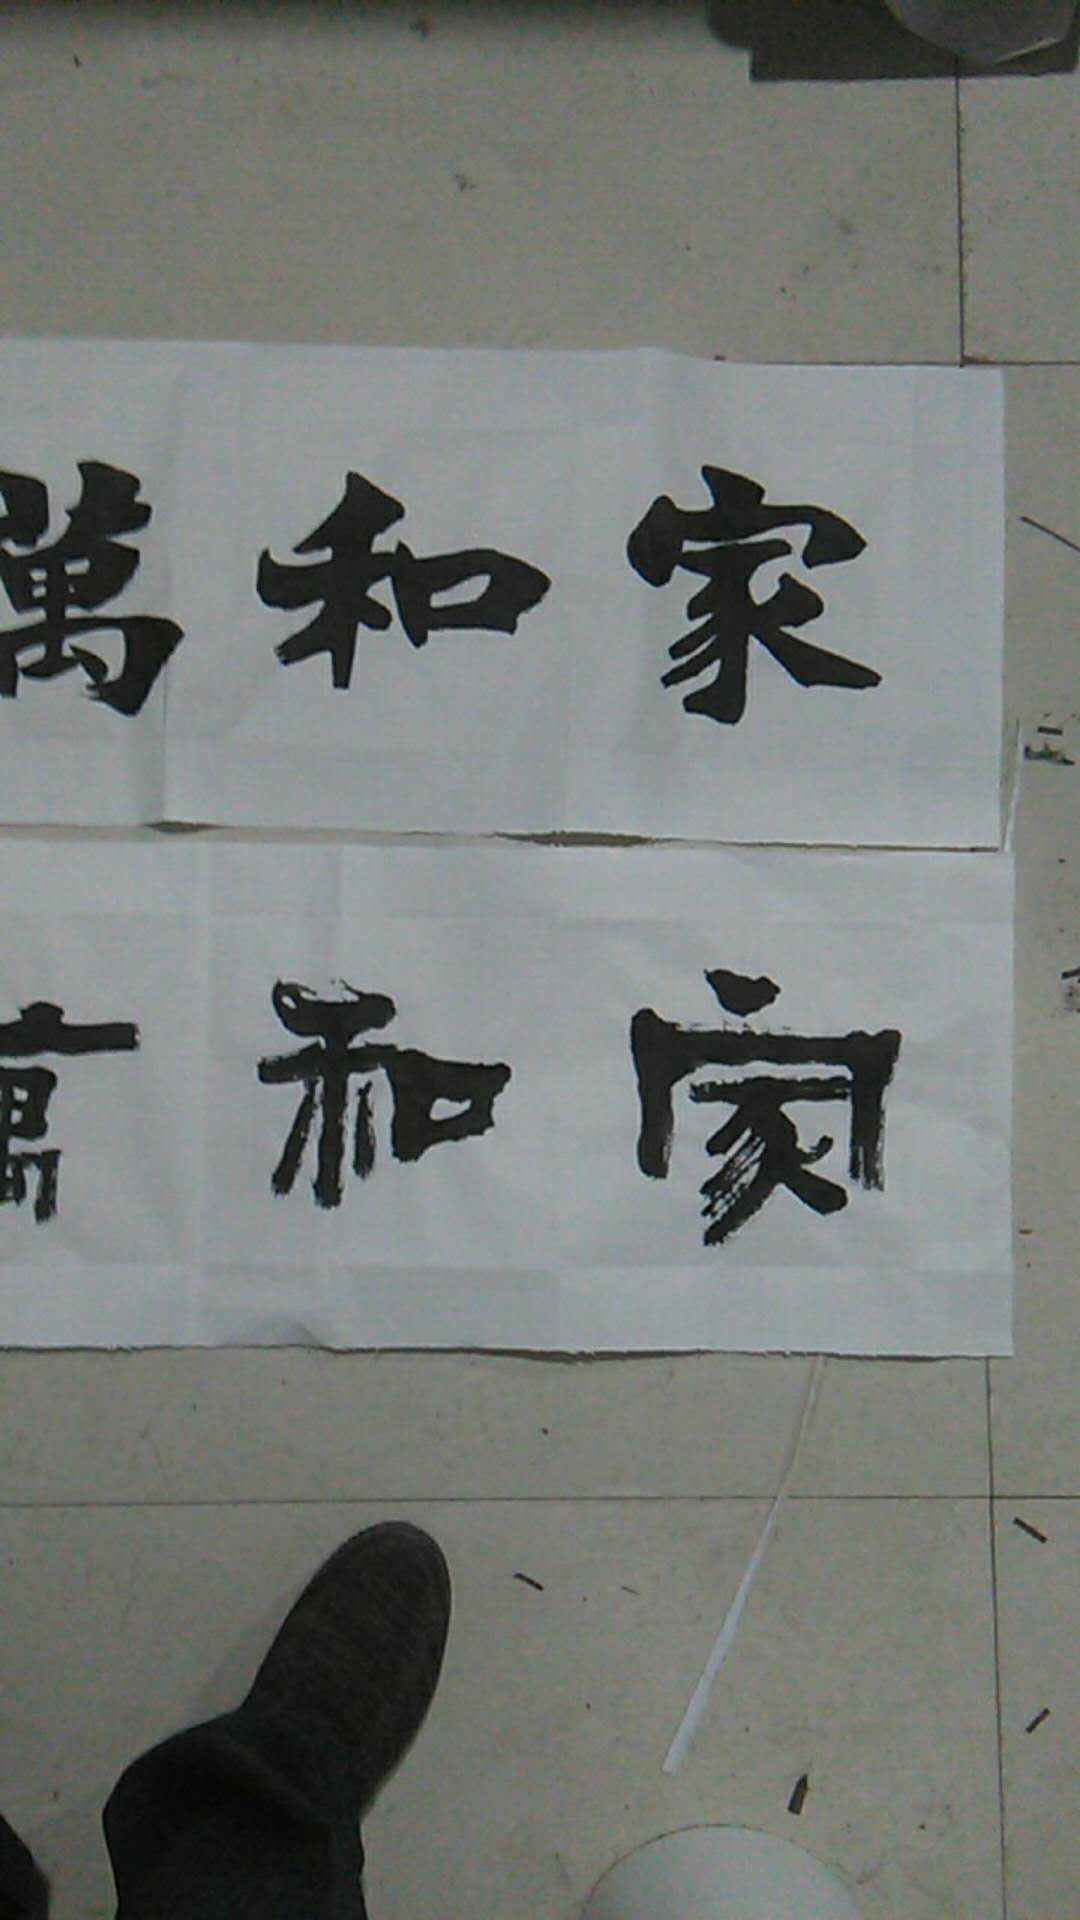 家和萬
家和萬